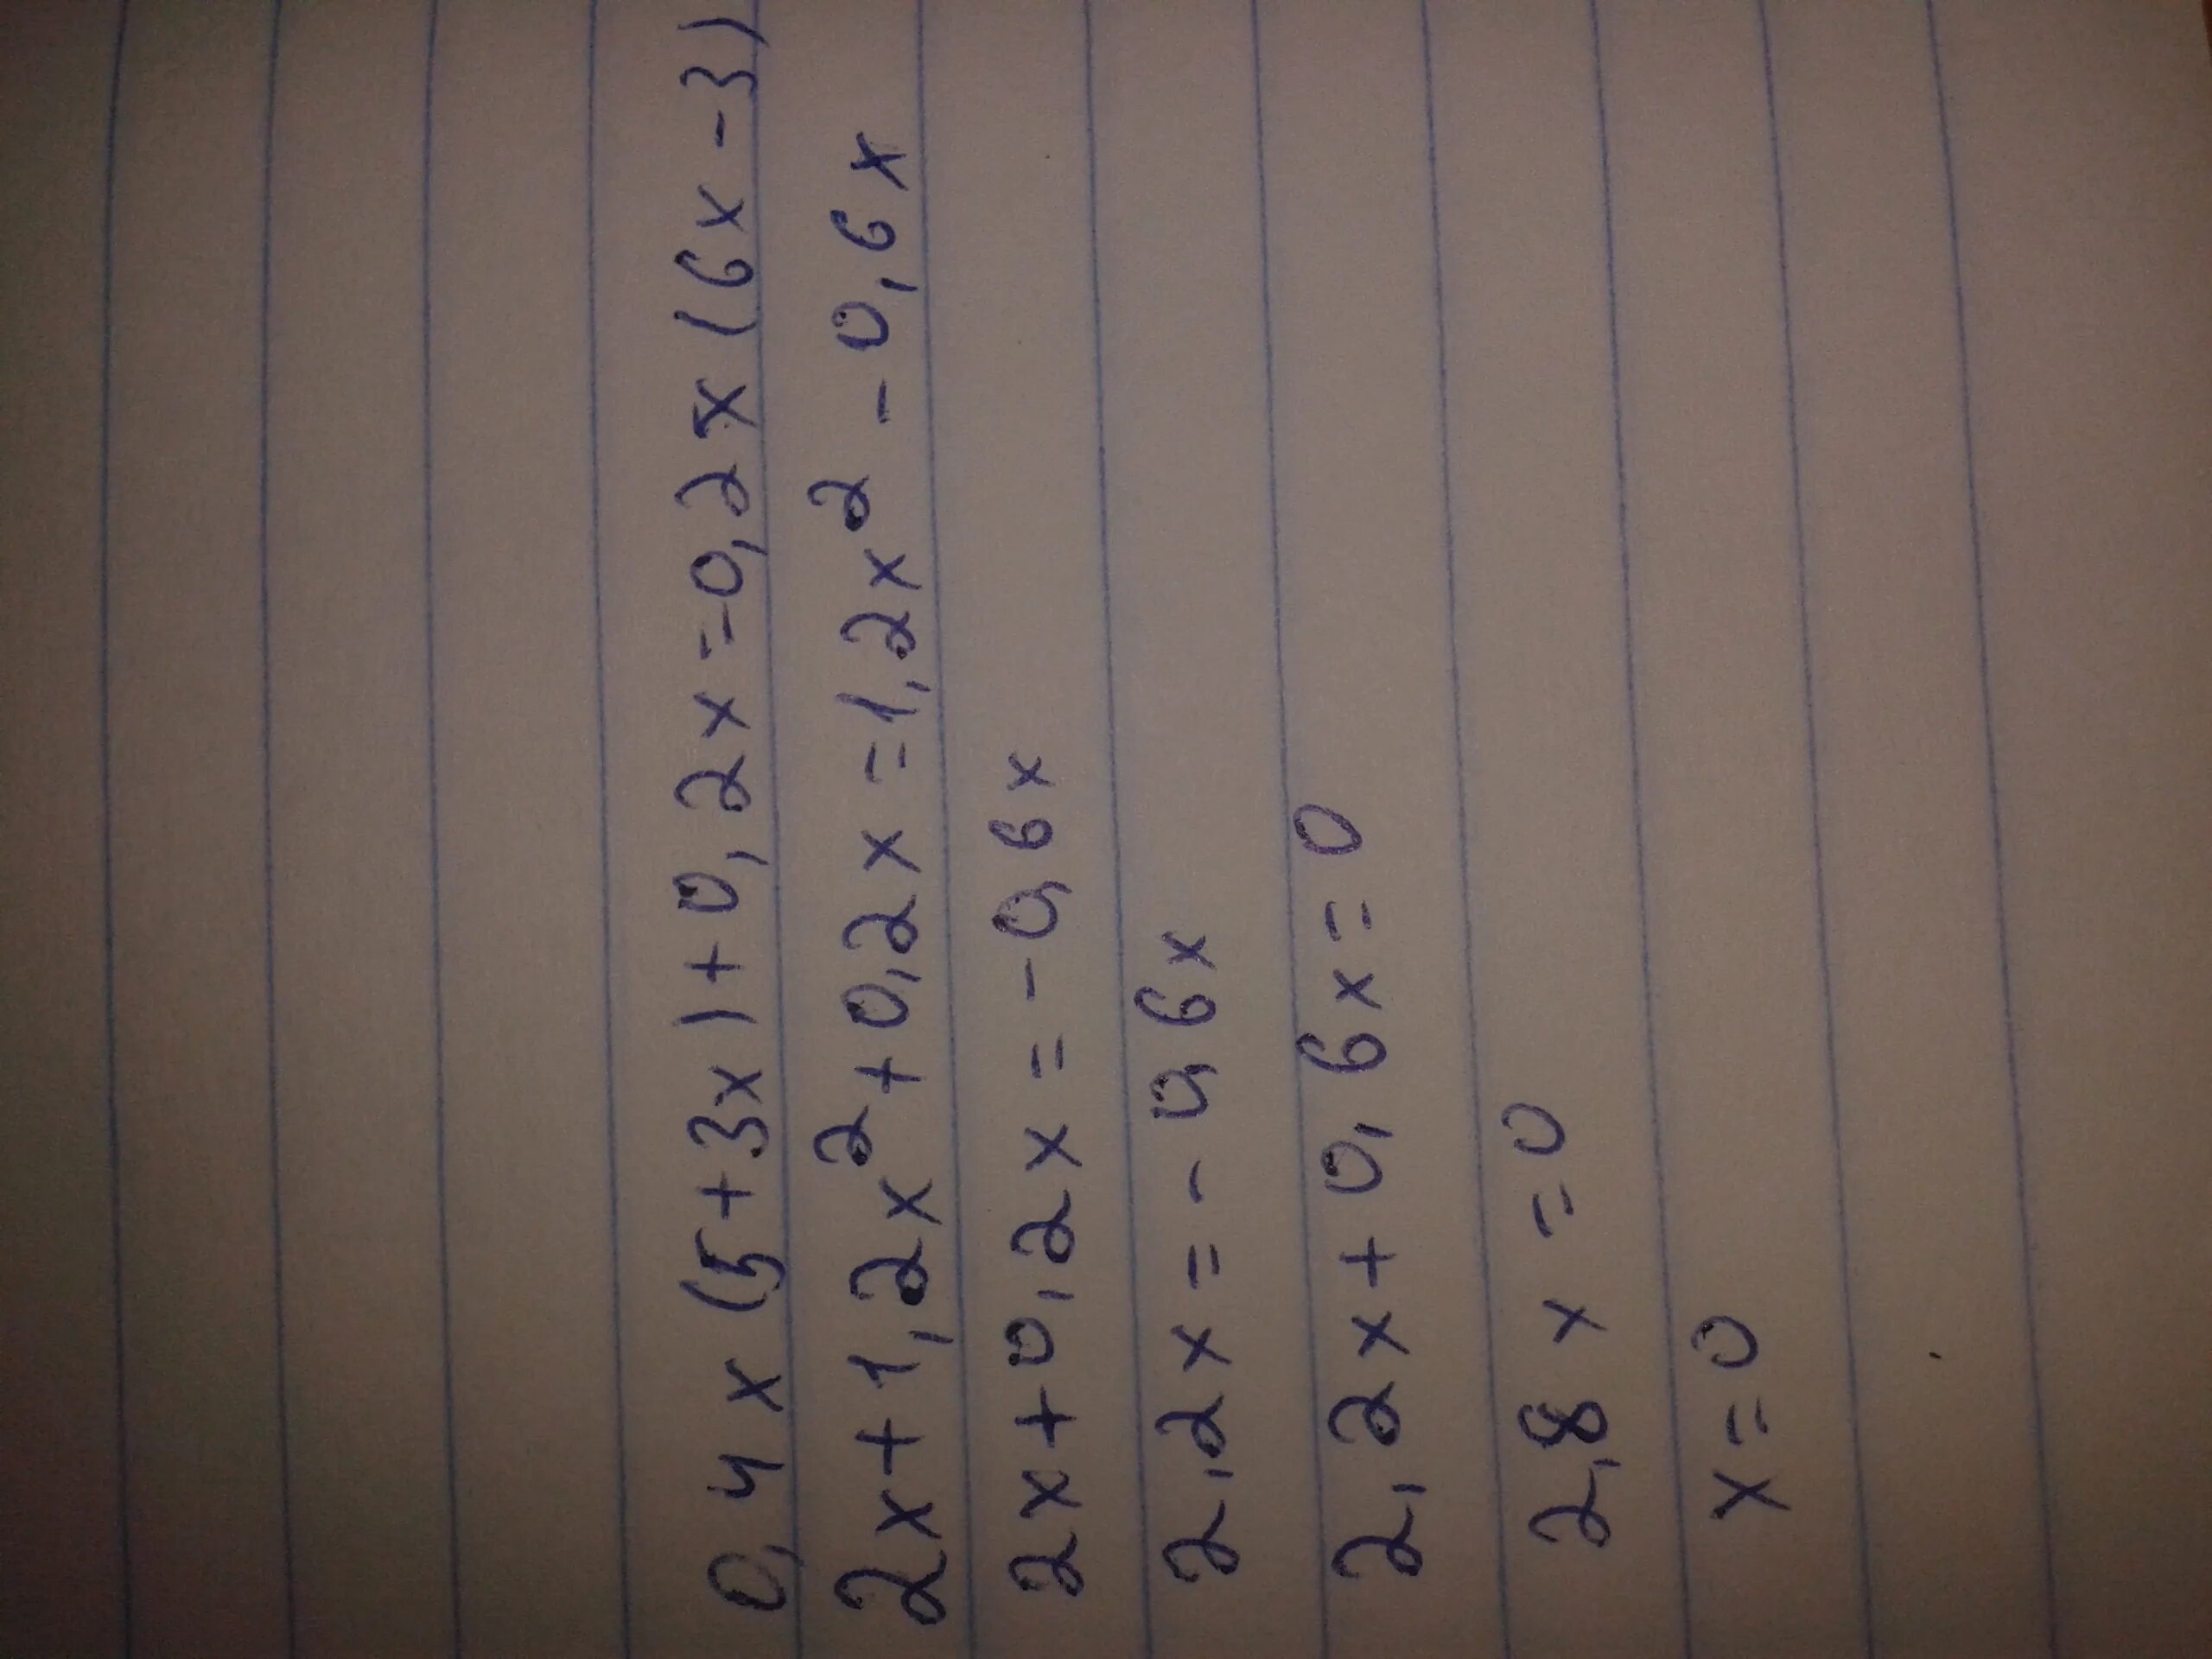 0,4x(5+3x)+0,2x=0,2x(6x-3)
2x+1,2x²+0,2x=1,2x²-0,6x
2x+0,2x=-0,6x
2,2x=-0,6x
2,2x+0,6x=0
2,8x=0
x=0